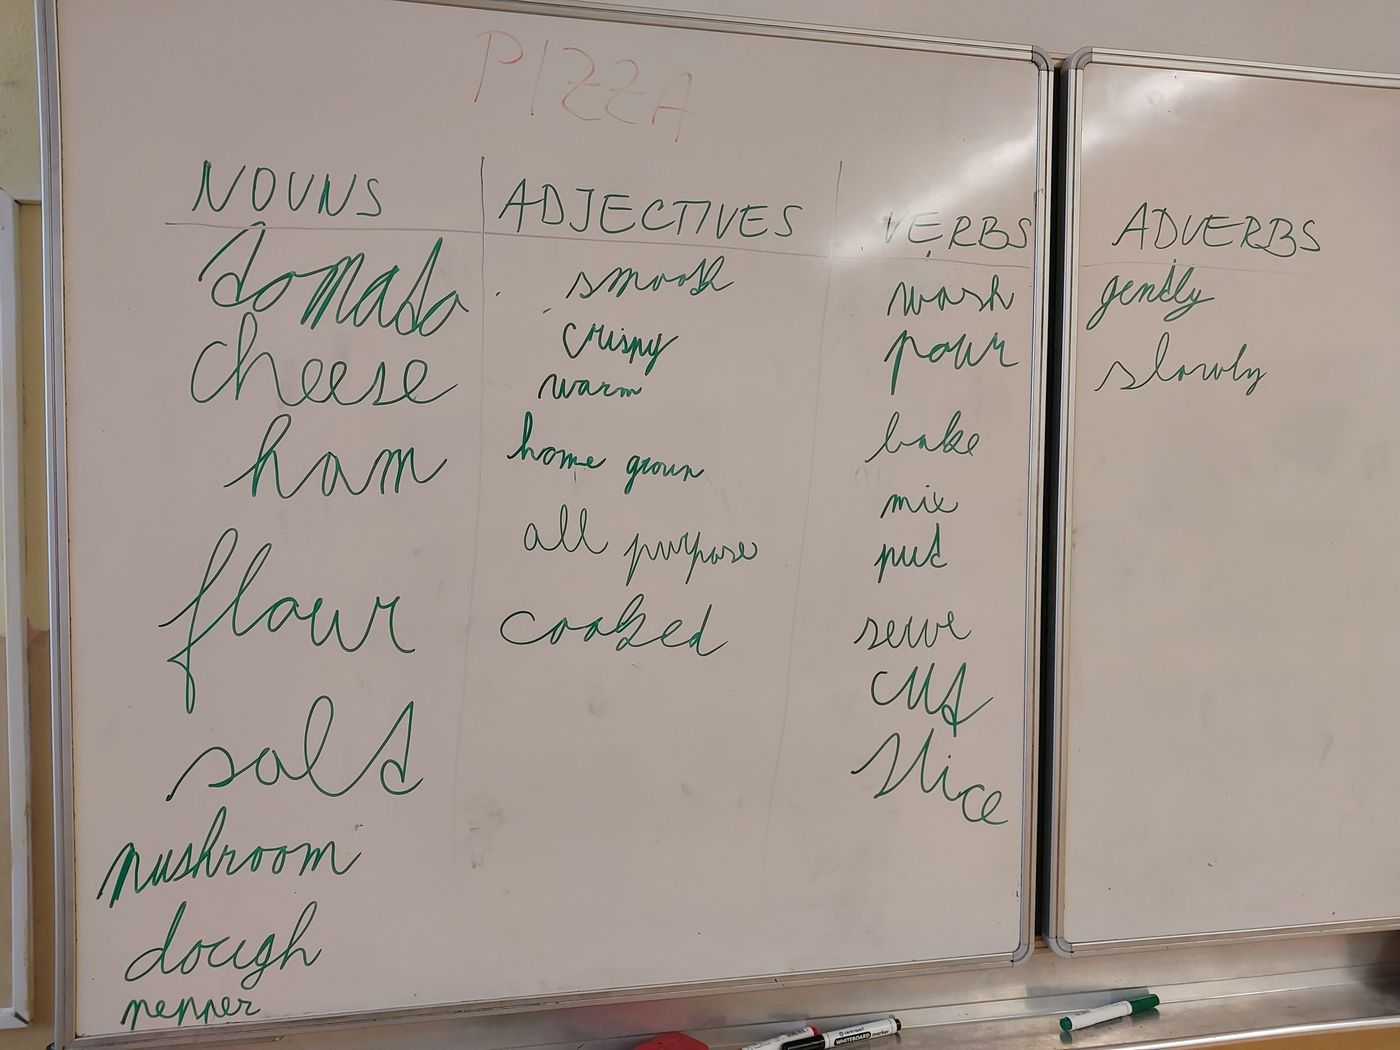 PIZZA
NOUNS
tomato
cheese
ham
flour
salt
mushroom
dough
pepper
ADJECTIVES
smooth
crispy
warm
home groun
all purpose
cooked
VERBS
wash
pour
bake
mix
put
serve
cut
slice
ADVERBS
gently
slowly
WHITEBOARD marker